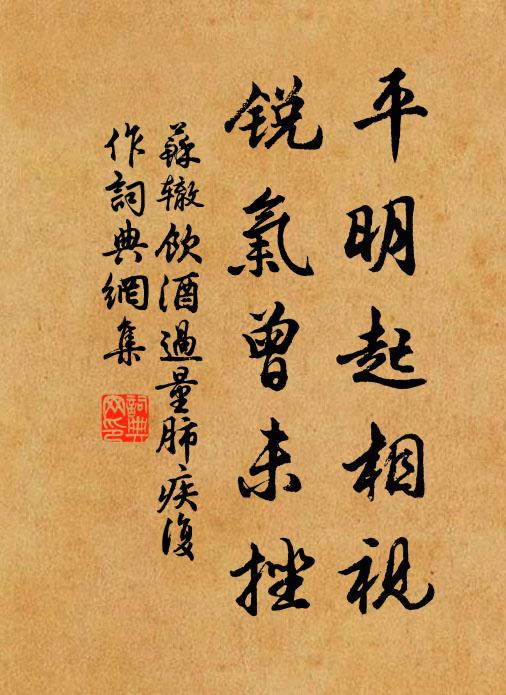 平明起相視
銳氣曾未挫
蘇辙飲酒過量肺疾復
作詞典網集
詞典
网印